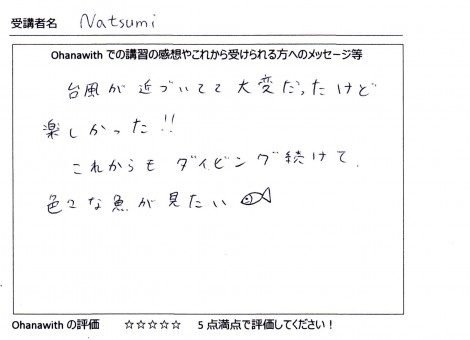 受講者名 Natsumi
Ohanawith での講習の感想やこれから受けられる方へのメッセージ等
台風が近づいてて大変だったけど
楽しかった!!
これからもダイビング続けて、
色々な魚が見たい
Ohanawith の評価 ☆☆☆☆☆ 5点満点で評価してください！